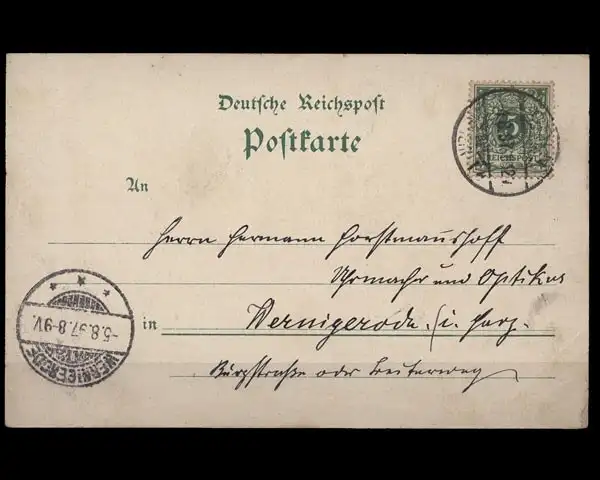 Deutsche Reichspost
Postkarte
5
REICHSPOST
An
Herrn Hermann Forstmannshoff
Uhrmacher und Optikus
in Wernigerode. (i. Harz.
Burgstraße oder Breiterweg
WERNIGERODE
5.8.97.8-9V.